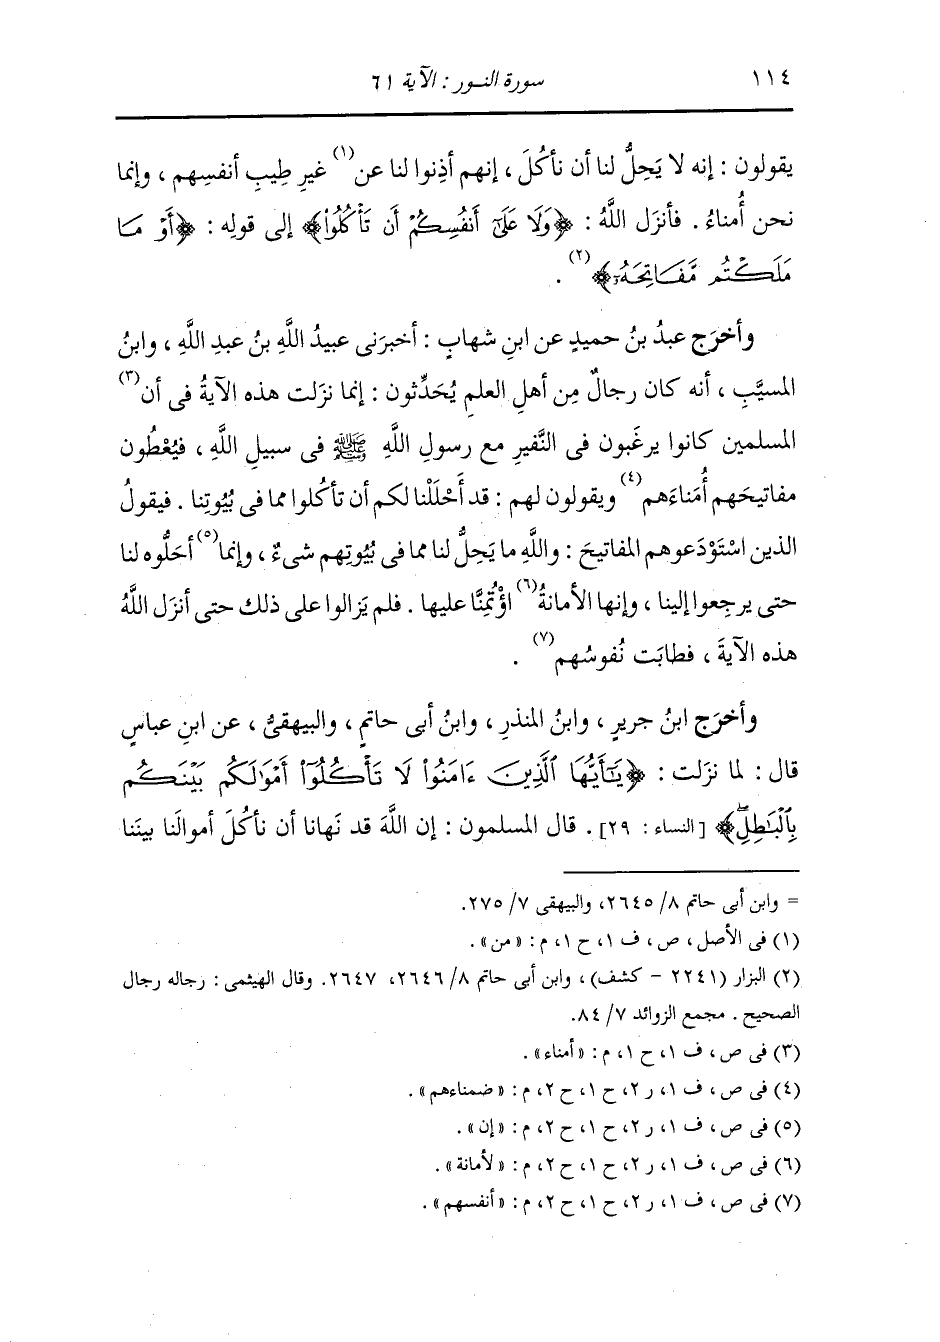 ١١٤
سورة النور : الآية ٦١
يقولون : إنه لا يَحِلُّ لنا أن نأكُلَ ، إنهم أذِنوا لنا عن(١) غيرِ طِيبِ أنفسِهم ، وإنما
نحن أُمناءُ . فأنزَل اللَّهُ : ﴿وَلَا عَلَىٰٓ أَنفُسِكُمْ أَن تَأْكُلُوا۟﴾ إلى قولِه : ﴿أَوْ مَا
مَلَكْتُم مَّفَاتِحَهُۥٓ﴾(٢) .
وأخرَج عبدُ بنُ حميدٍ عن ابنِ شهابٍ : أخبرَنى عبيدُ اللَّهِ بنُ عبدِ اللَّهِ ، وابنُ
المسيَّبِ ، أنه كان رجالٌ مِن أهلِ العلمِ يُحَدِّثون : إنما نزَلت هذه الآيةُ فى أن(٣)
المسلمين كانوا يرغَبون فى النَّفيرِ مع رسولِ اللَّهِ ﷺ فى سبيلِ اللَّهِ ، فيُعْطُون
مفاتيحَهم أُمَناءَهم(٤) ويقولون لهم : قد أَحْلَلْنا لكم أن تأكُلوا مما فى بُيُوتِنا . فيقولُ
الذين اسْتَوْدَعوهم المفاتيحَ : واللَّهِ ما يَحِلُّ لنا مما فى بُيُوتِهم شىءٌ ، وإنما(٥) أحَلُّوه لنا
حتى يرجِعوا إلينا ، وإنها الأمانةُ(٦) اؤْتُمِنَّا عليها . فلم يَزالوا على ذلك حتى أنزَل اللَّهُ
هذه الآيةَ ، فطابَت نُفوسُهم(٧) .
وأخرَج ابنُ جريرٍ ، وابنُ المنذرِ ، وابنُ أبى حاتمٍ ، والبيهقىُّ ، عن ابنِ عباسٍ
قال : لما نزَلت : ﴿يَٰٓأَيُّهَا ٱلَّذِينَ ءَامَنُوا۟ لَا تَأْكُلُوٓا۟ أَمْوَٰلَكُم بَيْنَكُم
بِٱلْبَٰطِلِۖ﴾ [النساء : ٢٩] . قال المسلمون : إن اللَّهَ قد نَهانا أن نأكُلَ أموالَنا بينَنا
= وابن أبى حاتم ٨/ ٢٦٤٥، والبيهقى ٧/ ٢٧٥.
(١) فى الأصل ، ص ، ف ١، ح ١، م : «من» .
(٢) البزار (٢٢٤١ - كشف) ، وابن أبى حاتم ٨/ ٢٦٤٦، ٢٦٤٧. وقال الهيثمى : رجاله رجال
الصحيح . مجمع الزوائد ٧/ ٨٤.
(٣) فى ص ، ف ١، ح ١، م : «أمناء» .
(٤) فى ص ، ف ١، ر ٢، ح ١، ح ٢، م : «ضمناءهم» .
(٥) فى ص ، ف ١، ر ٢، ح ١، ح ٢، م : «إن» .
(٦) فى ص ، ف ١، ر ٢، ح ١، ح ٢، م : «لأمانة» .
(٧) فى ص ، ف ١، ر ٢، ح ١، ح ٢، م : «أنفسهم» .